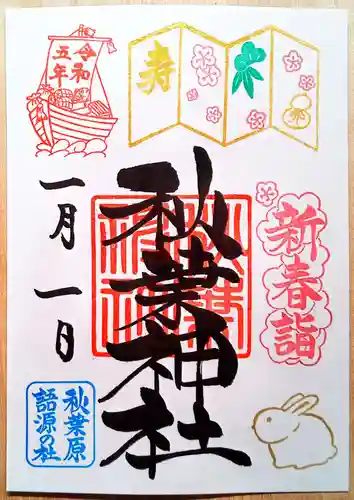 令和
五年
寿
新春詣
秋葉神社
秋葉神社
一月一日
秋葉原
語源の社